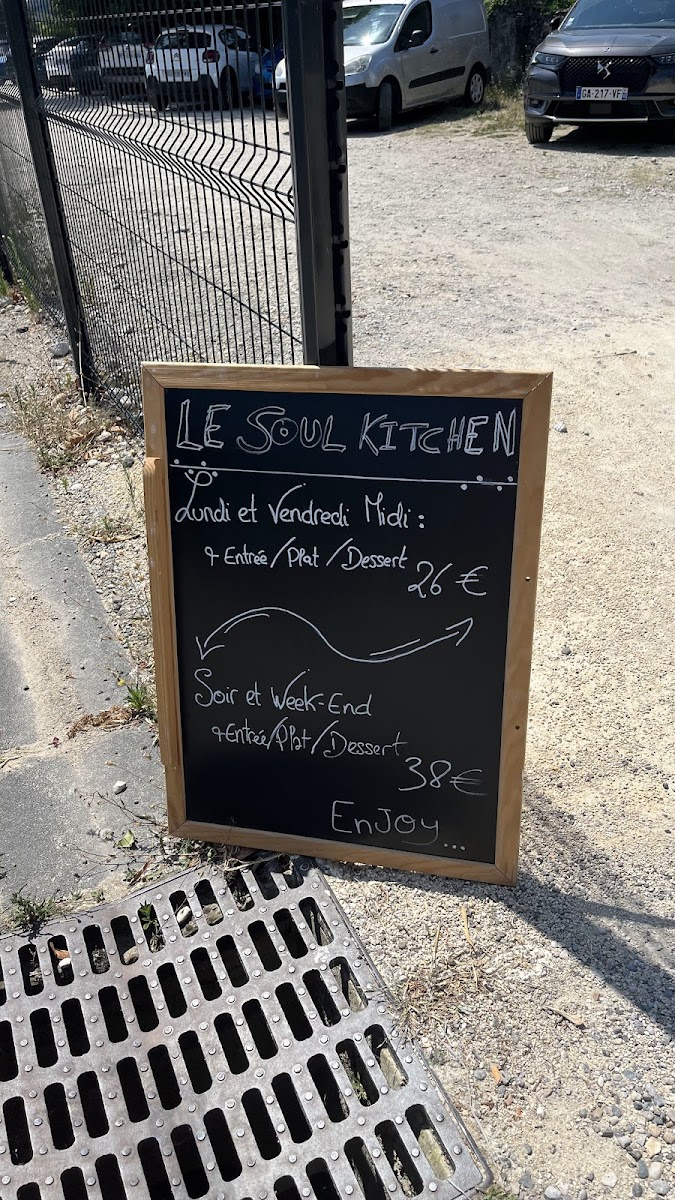 GA-217-VF
LE SOUL KITCHEN
Lundi et Vendredi Midi :
Entrée/Plat/Dessert
26 €
Soir et Week-End
Entrée/Plat/Dessert
38€
EnJoy...